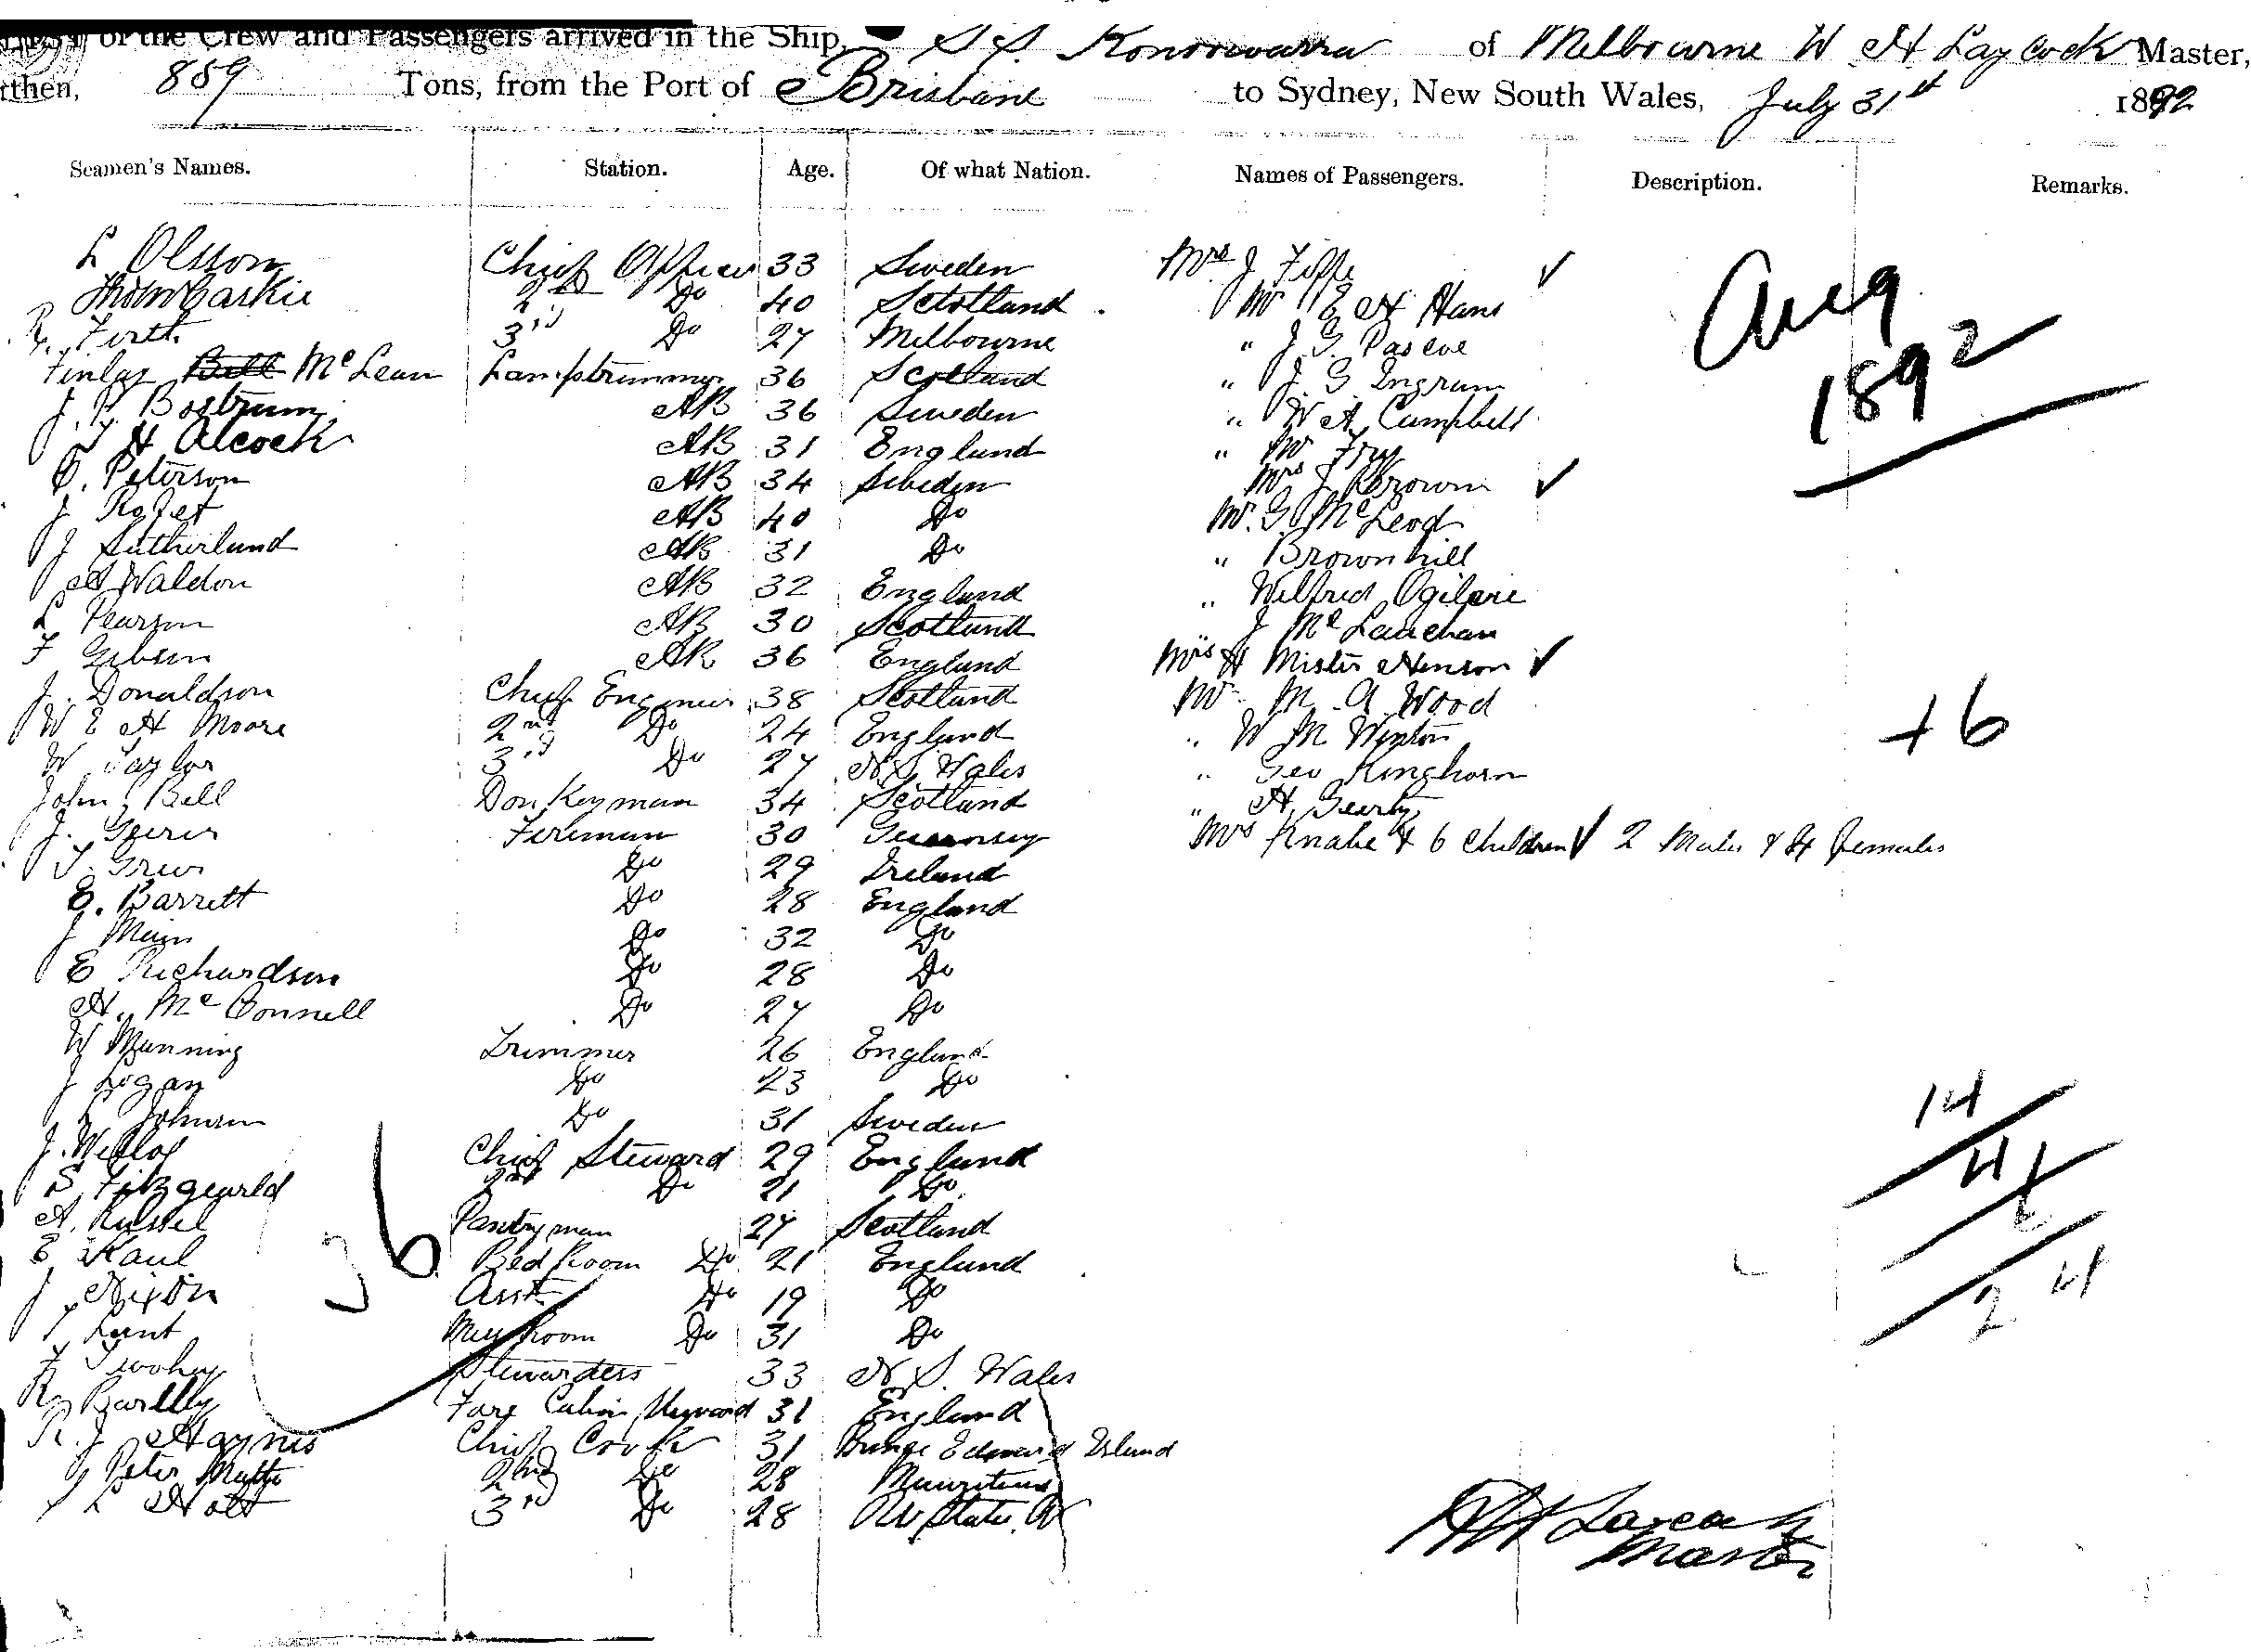 of the Crew and Passengers arrived in the Ship, S. S. Konoowarra of Melbourne W H Laycock Master,
rthen, 889 Tons, from the Port of Brisbane to Sydney, New South Wales, July 31st 1892
Seamen's Names. Station. Age. Of what Nation. Names of Passengers. Description. Remarks.
L Olsson Chief Officer 33 Sweden Mrs J Fiffe
Thos McCaskie 2nd Do 40 Scotland Mr E H Hans
Firth 3rd Do 27 Melbourne " J. G. Pascoe
Finlay Bell McLean Lamptrimmer 36 Scotland " J. G Ingram
J. P. Bostrum AB 36 Sweden " W A Campbell
T H Alcock AB 31 England " Mr Fry
O. Peterson AB 34 Sweden Mrs J Brown
J AB 40 Do Mr. G. McLeod
J Sutherland AB 31 Do " Brownhill
A Waldon AB 32 England " Wilfred Ogilvie
L Pearson AB 30 Scotland J McLauchan
F Gibson AB 36 England H Mister Henson
J. Donaldson Chief Engineer 38 Scotland Mr M A Wood
W E H Moore 2nd Do 24 England " W M Weston
W Taylor 3rd Do 27 N. S. Wales " Geo Kinghorn
John Bell Donkeyman 34 Scotland " H. Gearty
J. Fireman 30 Guernsey Mrs Knahe & 6 Children 2 Males & 4 females
T. Do 29 Ireland
E. Barrett Do 28 England
J Main Do 32 Do
E Richardson Do 28 Do
H. McConnell Do 27 Do
W Manning Trimmer 26 England
J Logan Do 23 Do
L Johnson Do 31 Sweden
J. Chief Steward 29 England
S. Fitzgearld 2nd Do 21 Do
A. Russel Pantryman 27 Scotland
E Kaul Bed Room Do 21 England
J Nixon Asst Do 19 Do
T Lunt Mess Room Do 31 Do
Twohey Stewardess 33 N. S. Wales
R Fore Cabin Steward 31 England
R. J Haynes Chief Cook 31 Prince Edward Island
Peter 2nd Do 28 Mauritius
L Holt 3rd Do 28
Aug
1892
+6
36
14
4
2 4
W H Laycock
Master